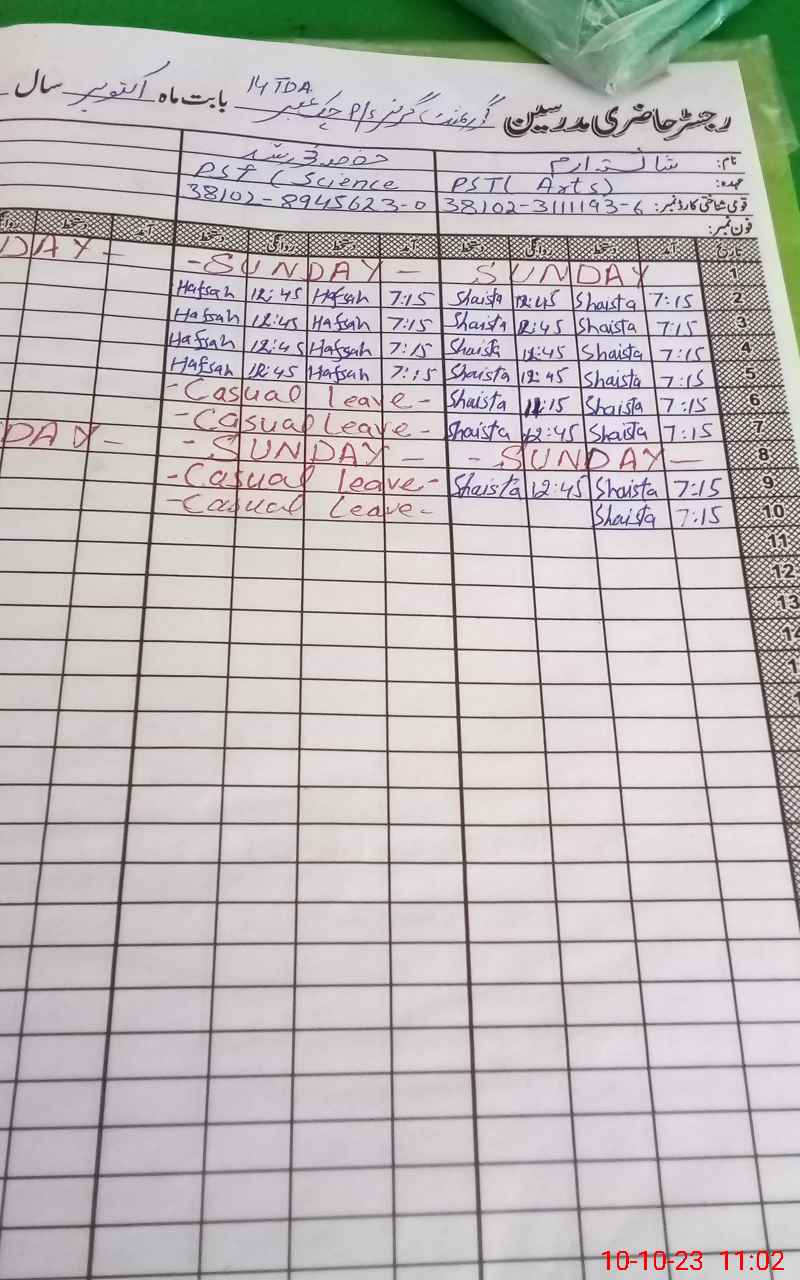 رجسٹر حاضری مدرسین گورنمنٹ گرلز P/S چک نمبر 14 TDA بابت ماہ اکتوبر سال
نام: شائستہ ارم حفصہ
عہدہ: PST( Arts) PST (Science
قومی شناختی کارڈ نمبر: 38102-3111193-6 38102-8945623-0
فون نمبر:
تاریخ آمد دستخط روانگی دستخط آمد دستخط روانگی دستخط آمد دستخط روانگی
1 SUNDAY -SUNDAY- DAY-
2 7:15 Shaista 12:45 Shaista 7:15 Hafsah 12:45 Hafsah
3 7:15 Shaista 12:45 Shaista 7:15 Hafsah 12:45 Hafsah
4 7:15 Shaista 12:45 Shaista 7:15 Hafsah 12:45 Hafsah
5 7:15 Shaista 12:45 Shaista 7:15 Hafsah 12:45 Hafsah
6 7:15 Shaista Shaista -Casual leave-
7 7:15 Shaista 12:45 Shaista -Casual leave-
8 -SUNDAY- -SUNDAY- DAY-
9 7:15 Shaista 12:45 Shaista -Casual leave-
10 7:15 Shaista -Casual leave-
11
12
13
14
10-10-23 11:02